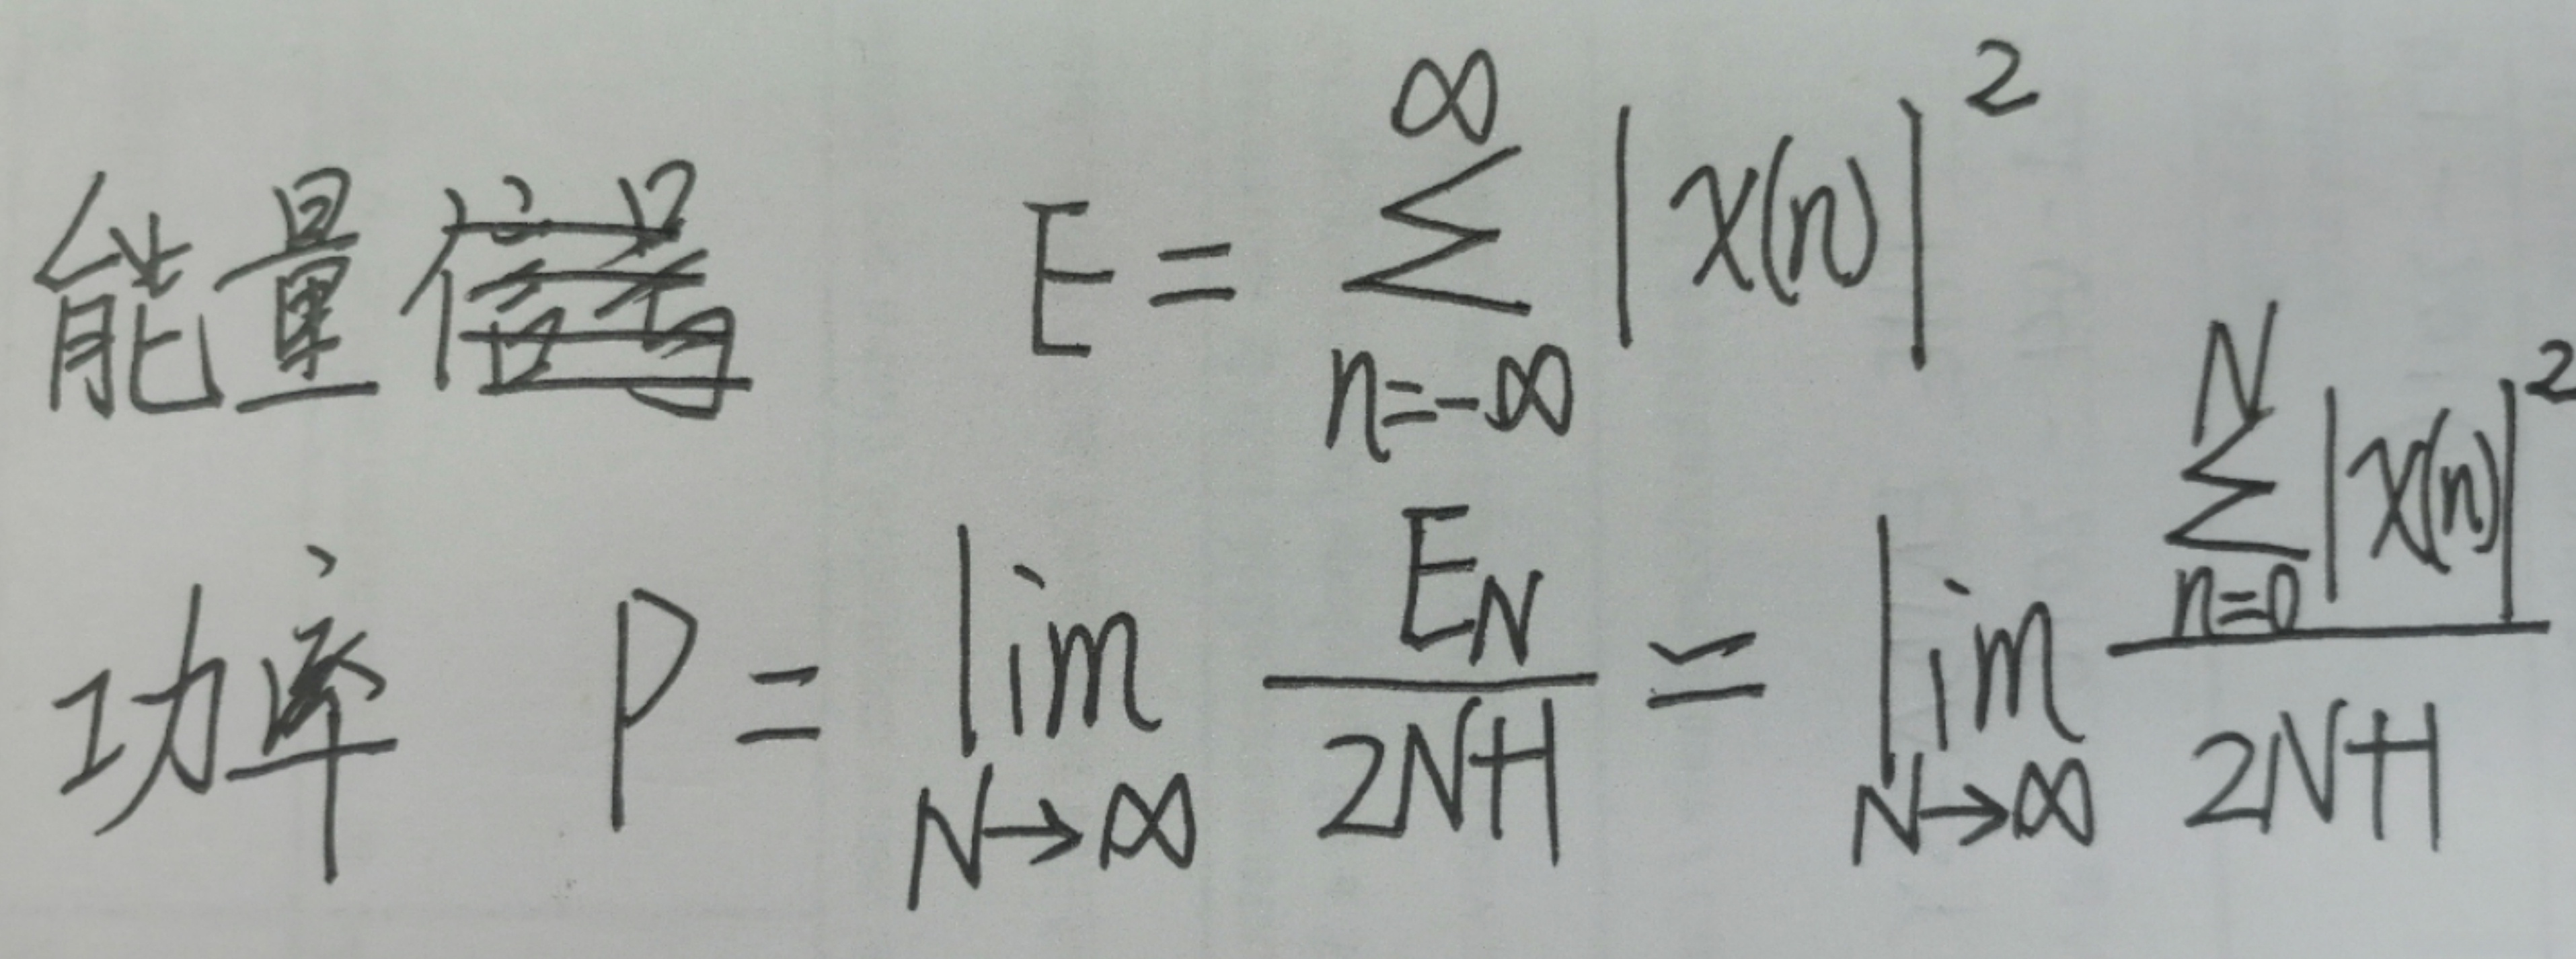 能量 E = \sum_{n=-\infty}^{\infty} |x(n)|^2
功率 P = \lim_{N→∞} \frac{E_N}{2N+1} = \lim_{N→∞} \frac{\sum_{n=0}^{N} |x(n)|^2}{2N+1}